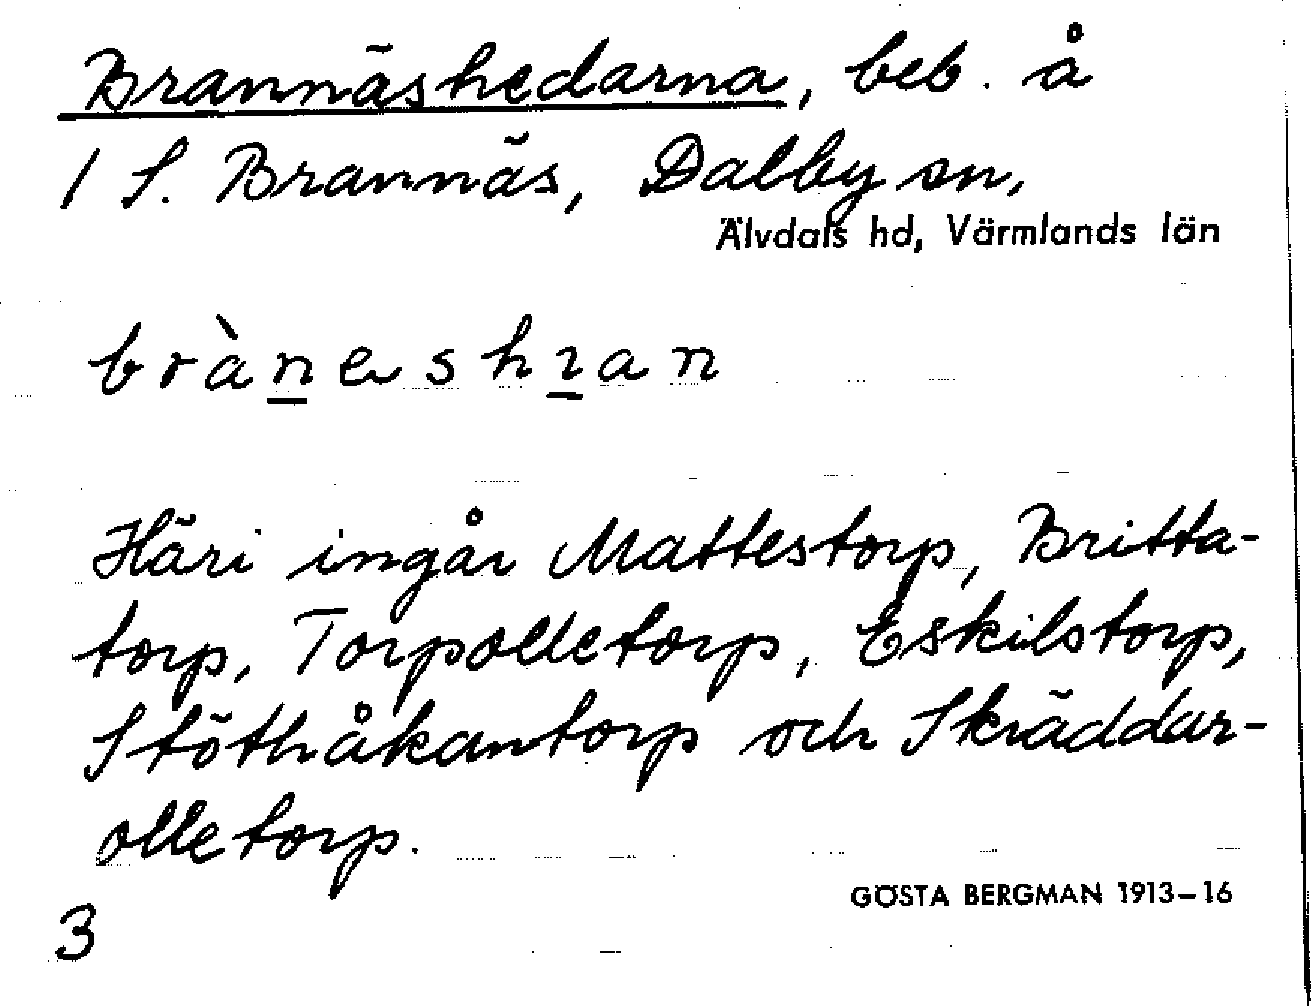 Brannäshedarna, beb. å
1 S. Brannäs, Dalby sn,
Älvdals hd, Värmlands län
bràneshɿan
Häri ingår Mattestorp, Britta-
torp, Torpolletorp, Eskilstorp,
Stöthåkantorp och Skräddar-
olletorp.
GÖSTA BERGMAN 1913–16
3